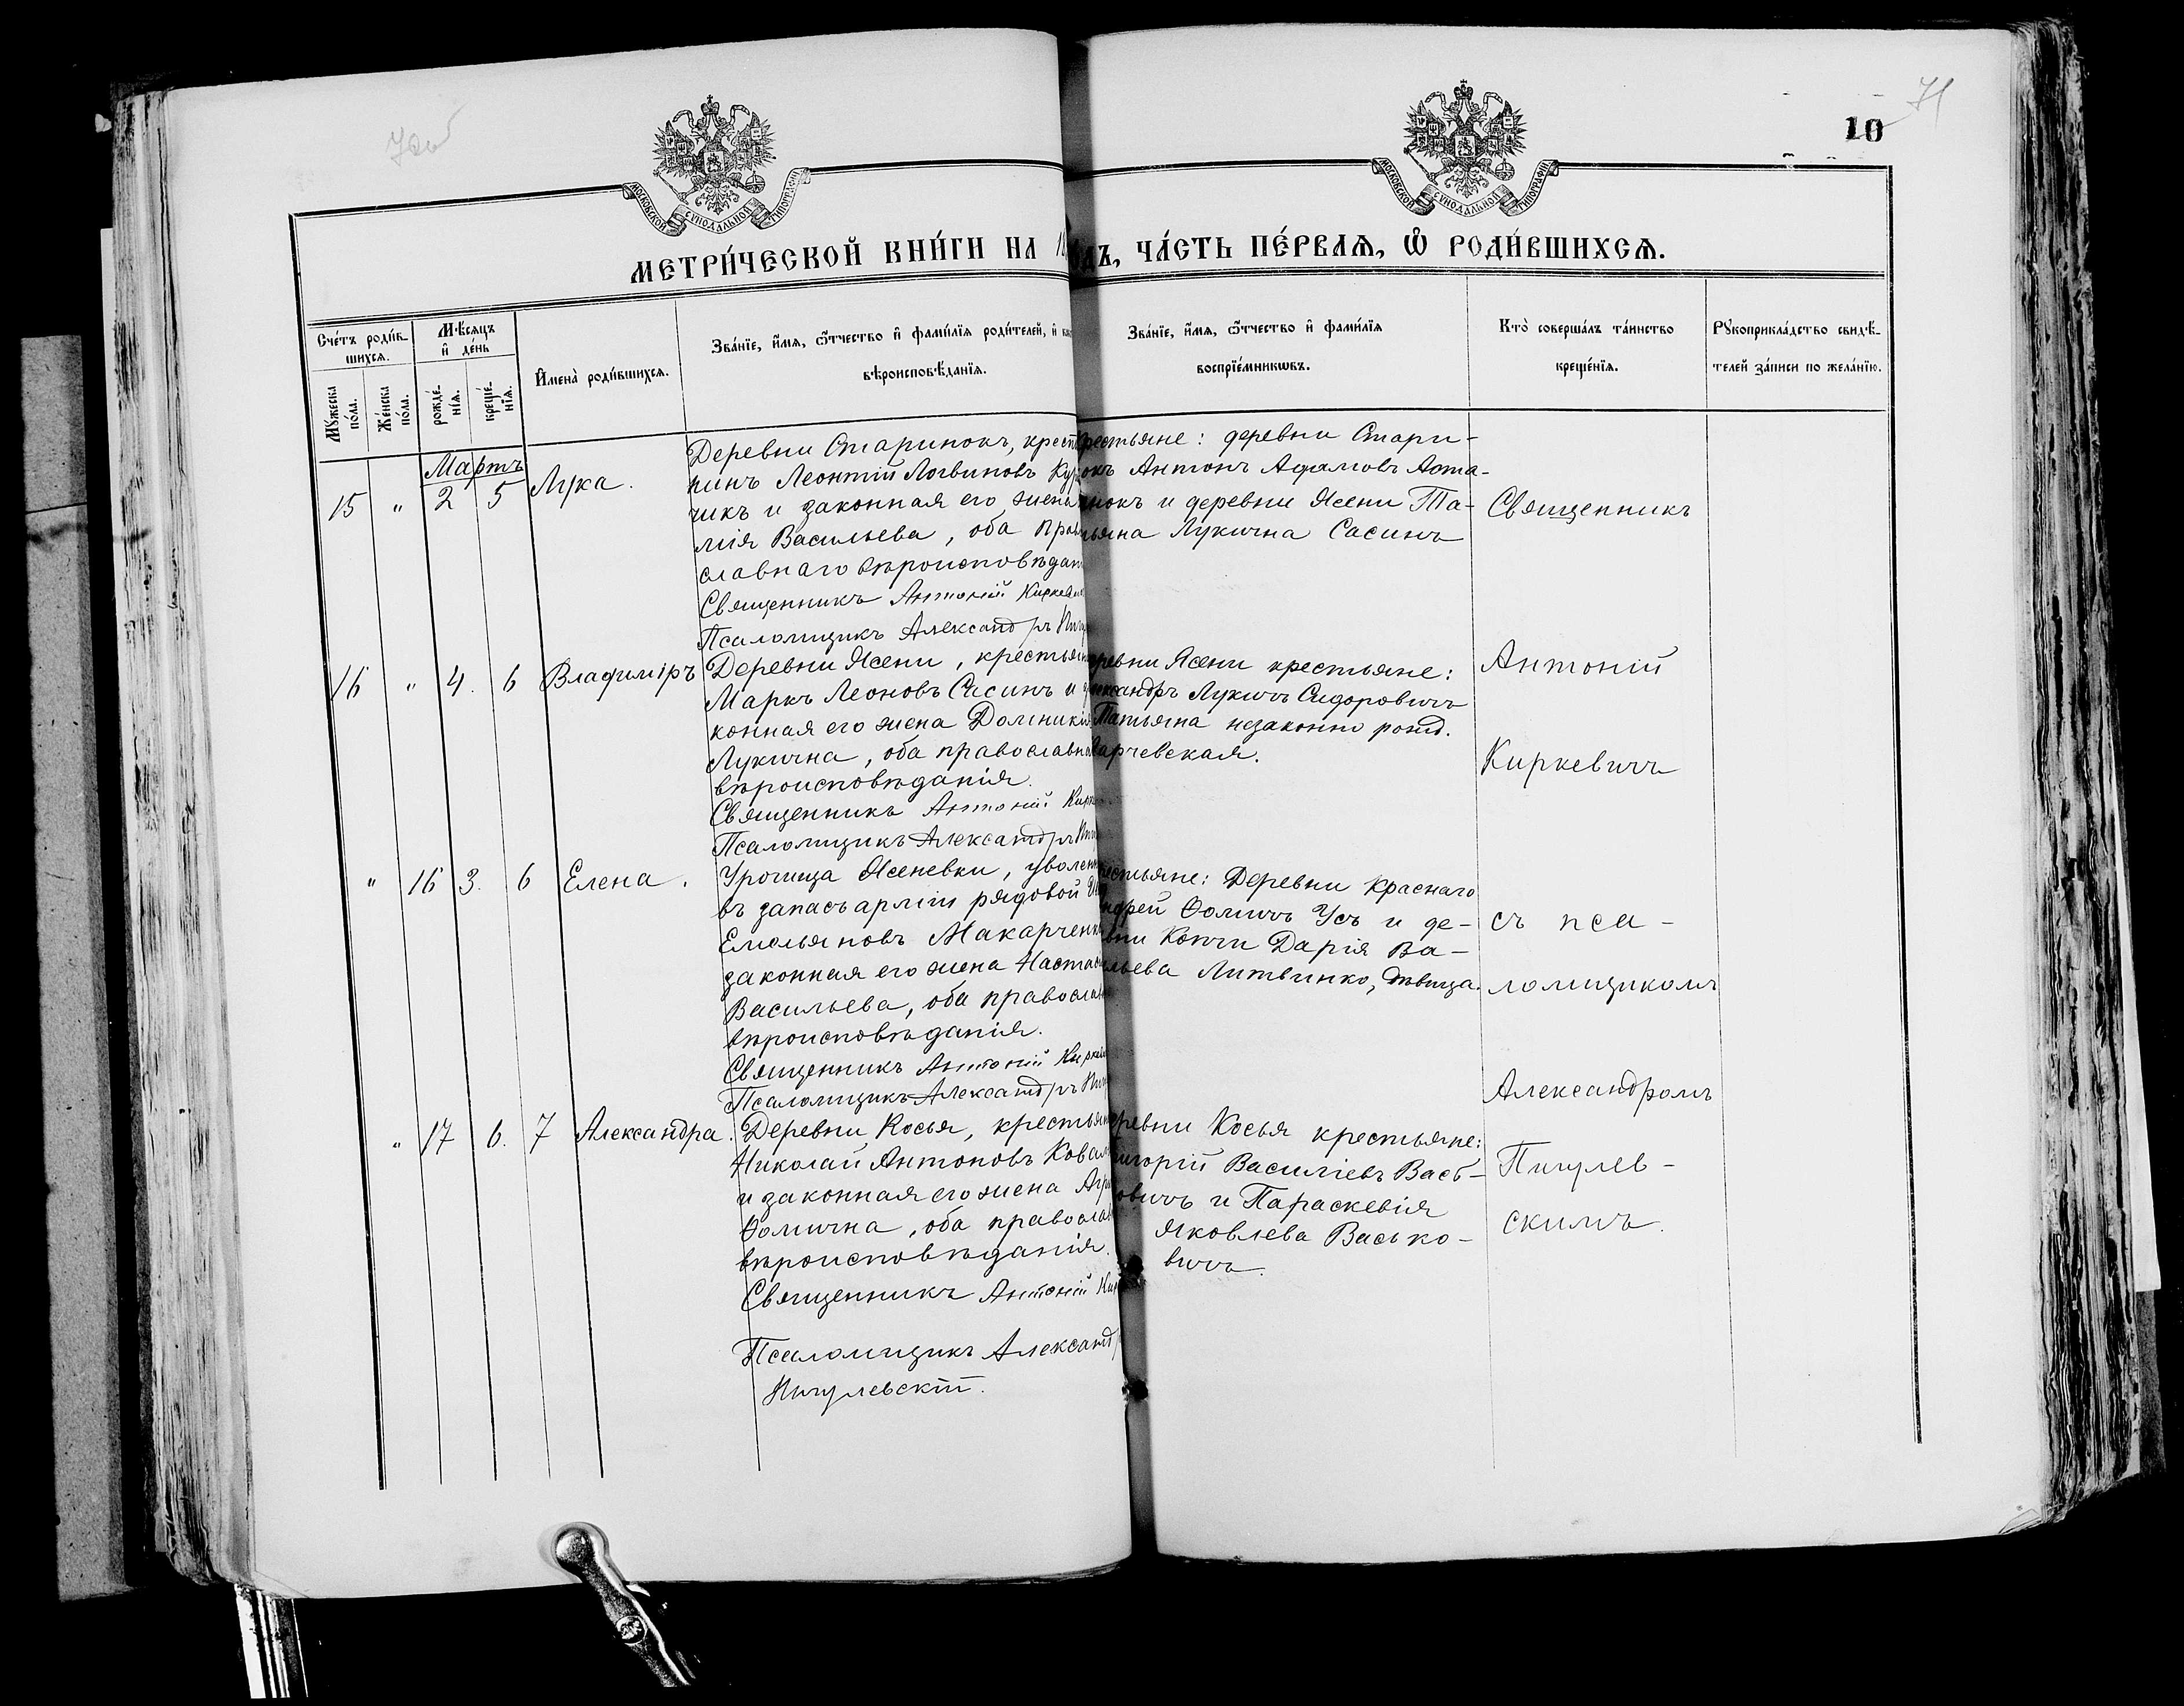 70об
71
10
МОСКОВСКОЙ СѴНОДАЛЬНОЙ ТИПОГРАФІИ
МОСКОВСКОЙ СѴНОДАЛЬНОЙ ТИПОГРАФІИ
МЕТРИ́ЧЕСКОЙ КНИ́ГИ НА
ЧА́СТЬ ПЕ́РВАѦ, Ѽ РОДИ́ВШИХСѦ.
Сче́тъ роди́в-
шихсѧ.
Мꙋ́жеска по́ла.
Же́нска по́ла.
Мѣ́сѧцъ и҆ де́нь
рожде́-
нїѧ.
креще́-
нїѧ.
И҆мена̀ роди́вшихсѧ.
Зва́нїе, и҆́мѧ, ѻ҆́тчество и҆ фами́лїѧ роди́телей, и҆
вѣроисповѣ́данїѧ.
Зва́нїе, и҆́мѧ, ѻ҆́тчество и҆ фами́лїѧ
воспрїе́мникѡвъ.
Кто̀ соверша́лъ та́инство
креще́нїѧ.
Рꙋкоприкла́дство свидѣ́-
телей за́писи по жела́нїю.
Мартъ
15 " 2 5 Лука.
Деревни Старинокъ, крест
нинъ Леонтій Логвиновъ Кур
чикъ и законная его жена
мія Васильева, оба прав
славнаго вѣроисповѣдан
Священникъ Антоній Киркев
Псаломщикъ Александръ Пигу
крестьяне: деревни Стари-
окъ Антонъ Адамовъ Аста-
нокъ и деревни Ясени Та-
тьяна Лукична Сасинъ
16 " 4. 6 Владиміръ
Деревни Ясени, крестьян
Маркъ Леоновъ Сасинъ и
конная его жена Домникія
Лукична, оба православн
вѣроисповѣданія.
Священникъ Антоній Кирк
Псаломщикъ Александръ Пиг
ревни Ясени крестьяне:
ександръ Лукичъ Сидоровичъ
Татьяна незаконно рожд.
арчевская.
" 16 3. 6 Елена.
Урочища Ясеневки, уволен
въ запасъ арміи рядовой
Емельяновъ Макарченк
законная его жена Настас
Васильева, оба православ
вѣроисповѣданія.
Священникъ Антоній Кирке
Псаломщикъ Александръ Пиг
естьяне: Деревни Краснаго
ндрей Ѳомичъ Усъ и де-
вни Копчи Дарія Ва-
ильева Литвинко, дѣвица.
" 17 6. 7 Александра.
Деревни Косья, крестьян
Николай Антоновъ Ковал
и законная его жена Агр
Ѳомична, оба православ
вѣроисповѣданія.
Священникъ Антоній Кир
Псаломщикъ Александр
Пигулевскій.
ревни Косья крестьяне:
игорій Василіевъ Вась-
овичъ и Параскевія
Яковлева Васько-
вичъ.
Священникъ
Антоній
Киркевичъ
съ пса-
ломщикомъ
Александромъ
Пигулев-
скимъ.